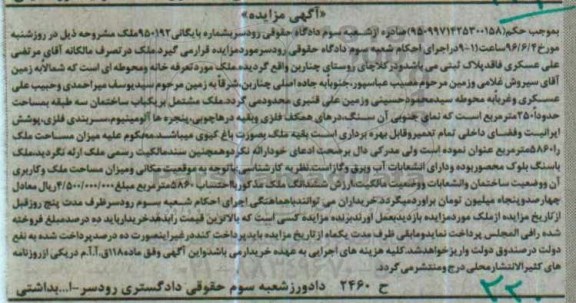 «آگهی مزایده»
بموجب حکم(۹۵۰۹۹۷۱۴۲۵۳۰۰۱۵۸)صادره ازشعبه سوم دادگاه حقوقی رودسربشماره بایگانی۹۵۰۱۹۲ملک مشروحه ذیل در روزشنبه
مورخ۹۶/۶/۴ساعت(۱۱-۹)دراجرای احکام شعبه سوم دادگاه حقوقی رودسرموردمزایده قرارمی گیرد.ملک درتصرف مالکانه آقای مرتضی
علی عسکری فاقدپلاک ثبتی می باشدودرکلاچای روستای چنارین واقع گردیده.ملک موردتعرفه خانه ومحوطه ای است که شمالابه زمین
آقای سیروش غلامی وزمین مرحوم مصیب عباسپور،جنوبابه جاده اصلی چنارین،شرقابه زمین مرحوم سیدیوسف میراحمدی وحبیب علی
عسکری وغربابه محوطه سیدمحمودحسینی وزمین علی قنبری محدودمی گردد.ملک مشتمل بریکباب ساختمان سه طبقه بمساحت
حدودا۲۵۰مترمربع است که نمای جنوبی آن سنگ،درهای همکف فلزی وبقیه درهاچوبی،پنجره ها آلومینیوم،سربندی فلزی،پوشش
ایرانیت وفضای داخلی تمام تعمیروقابل بهره برداری است بقیه ملک بصورت باغ کیوی میباشد.محکوم علیه میزان مساحت ملک
را۵۸۶۰مترمربع عنوان نموده است ولی مدرکی دال برصحت ادعای خودارائه نکردوهمچنین سندمالکیت رسمی ملک ارئه نگردید.ملک
باسنگ بلوک محصوربوده ودارای انشعابات آب وبرق وگازاست.نظریه کارشناسی باتوجه به موقعیت مکانی ومیزان مساحت ملک وکاربری
آن ووضعیت ساختمان وانشعابات ووضعیت مالکیت،ارزش ششدانگ ملک مذکورباحتساب۵۸۶۰مترمربع مبلغ۴/۵۰۰/۰۰۰/۰۰۰ریال معادل
چهارصدوپنجاه میلیون تومان برآوردمیگردد.خریداران می توانندباهماهنگی اجرای احکام شعبه سوم رودسرظرف مدت پنج روزقبل
ازتاریخ مزایده ازملک موردمزایده بازدیدبعمل آورند.برنده مزایده کسی است که بالاترین قیمت رابدهد.خریدارباید ده درصدمبلغ فروخته
شده رافی المجلس پرداخت نمایدومابقی ظرف مدت یکماه ازتاریخ مزایده بایدپرداخت کنددرغیراینصورت ده درصدپرداخت شده به نفع
دولت درصندوق دولت واریزخواهدشد.کلیه هزینه های اجرایی به عهده خریدارمی باشد.واین آگهی وفق ماده۱۱۸ق.آ.آ.م دریکی ازروزنامه
های کثیرالانتشارمحلی درج ومنتشرمی گردد.
ح ۲۴۶۰ دادورزشعبه سوم حقوقی دادگستری رودسر-ا...بداشتی